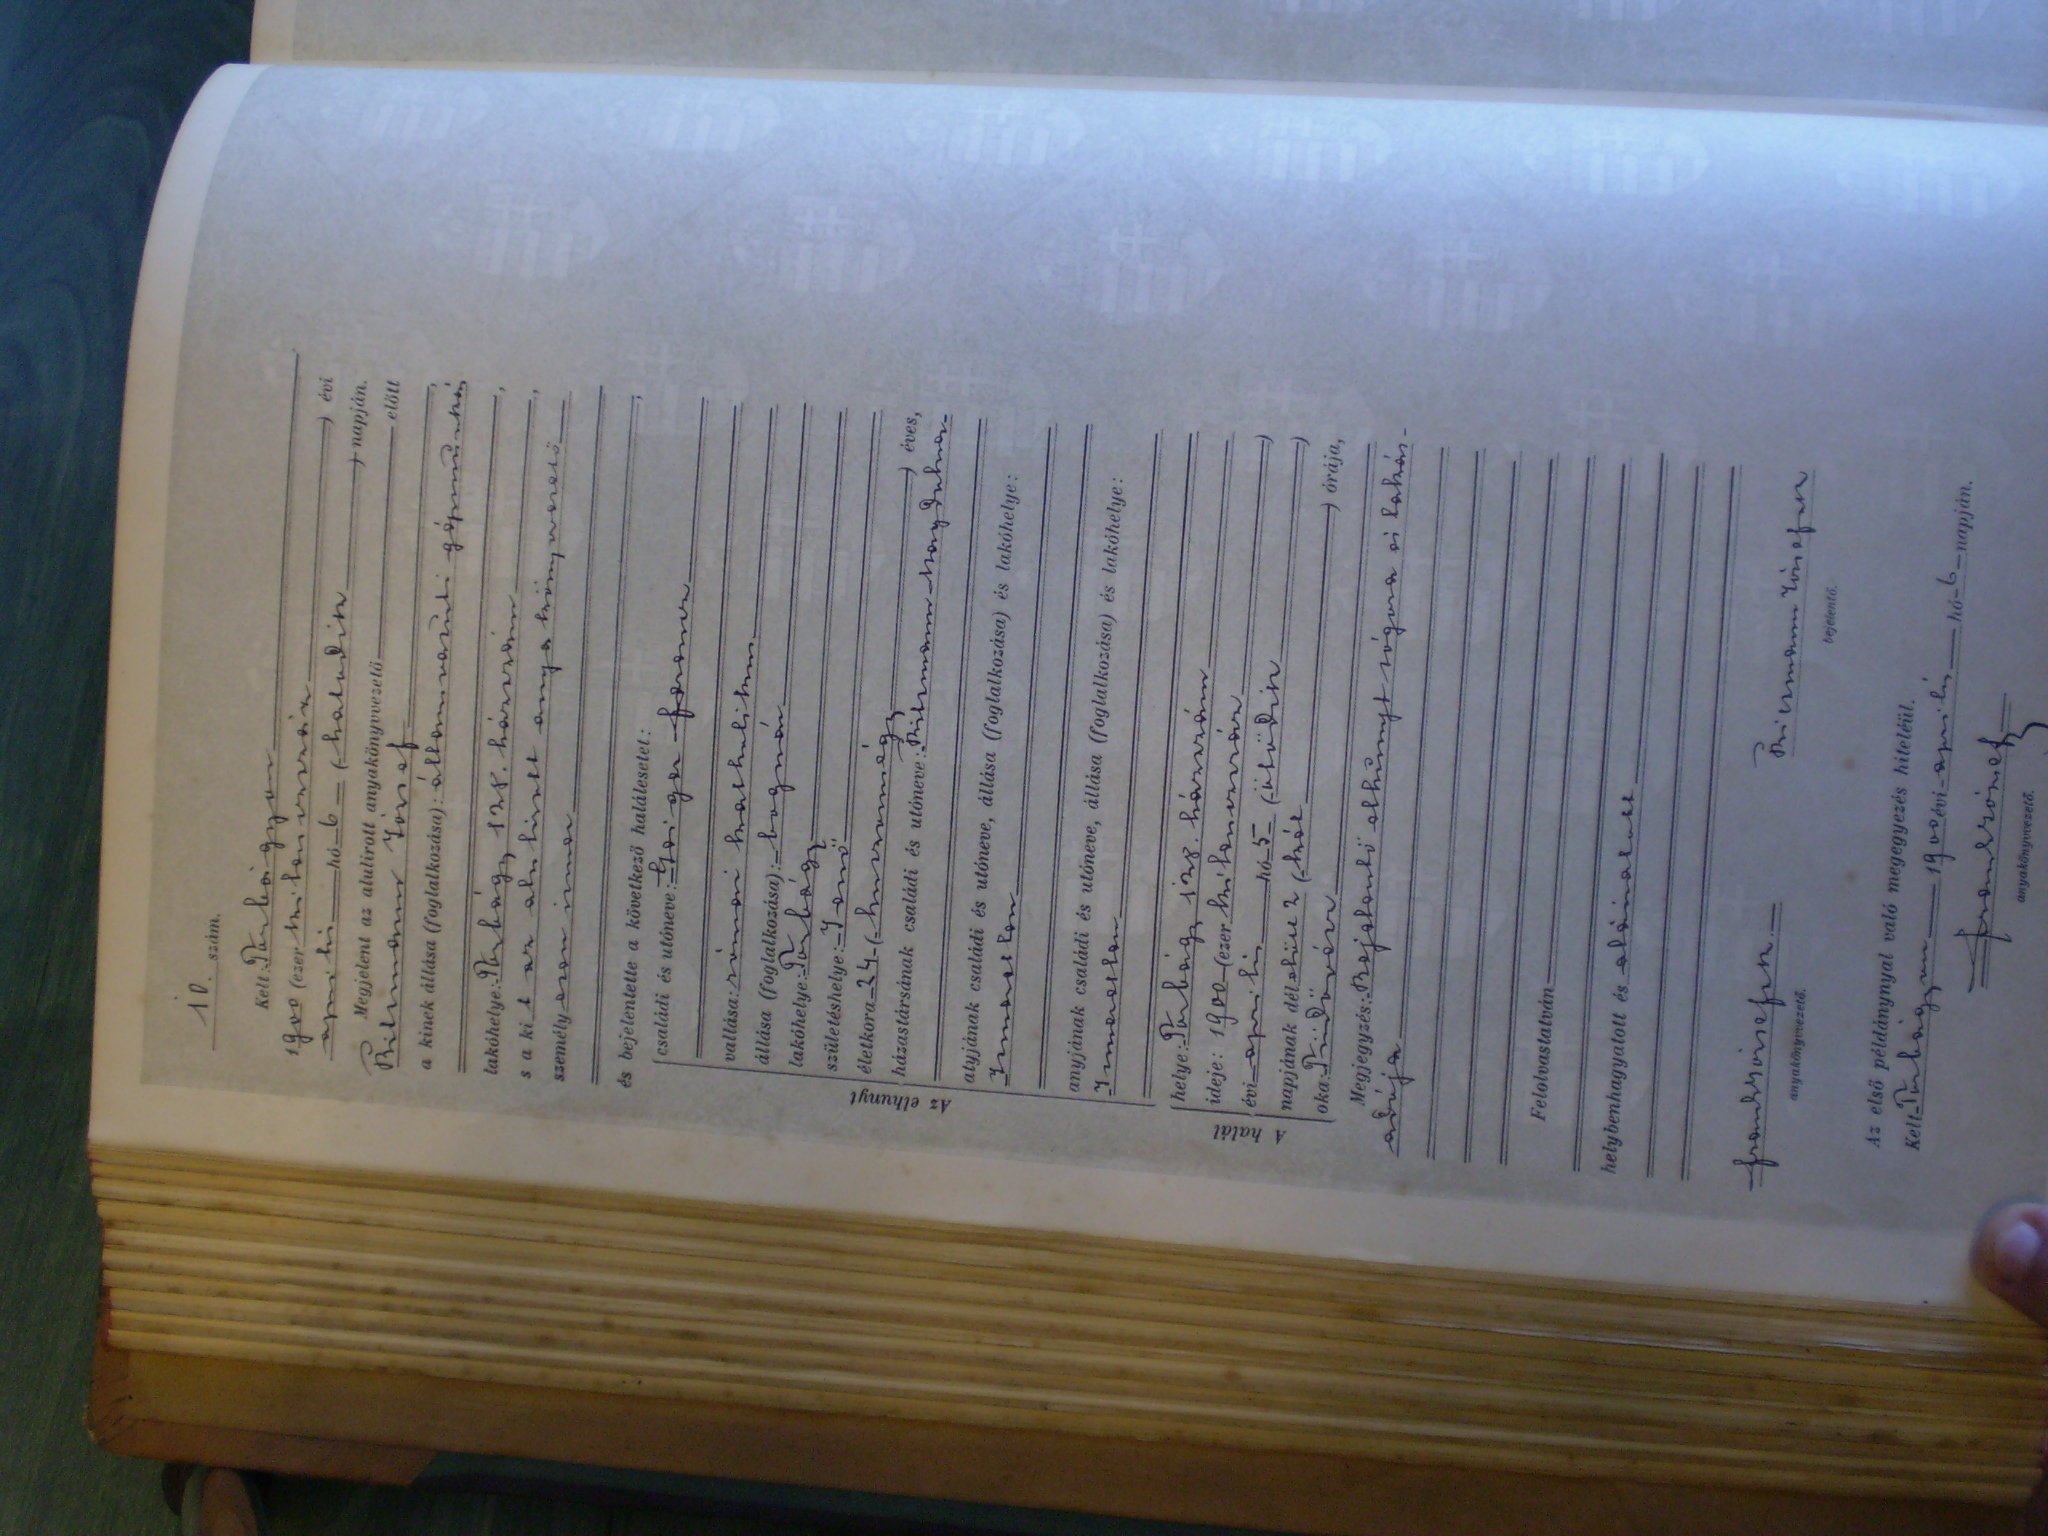 10. szám.
Kelt: Torbágyon
1900 (ezerkilenczszáz) évi
április hó 6 (hatodik) napján.
Megjelent az alulirott anyakönyvvezető előtt
Biermann József
a kinek állása (foglalkozása): államvasúti gépmunkás,
lakóhelye: Torbágy 128. házszám,
s a kit az alulirott anyakönyvvezető
személyesen ismer,
és bejelentette a következő halálesetet:
Az elhunyt
családi és utóneve: Ferencz
vallása: római katholikus
állása (foglalkozása): bognár
lakóhelye: Torbágy
születéshelye:
életkora 24 (huszonnégy) éves,
házastársának családi és utóneve:
atyjának családi és utóneve, állása (foglalkozása) és lakóhelye:
Ismeretlen
anyjának családi és utóneve, állása (foglalkozása) és lakóhelye:
Ismeretlen
A halál
helye: Torbágy 128. házszám
ideje: 1900 (ezerkilenczszáz)
évi április hó 5 (ötödik)
napjának délelőtt 2 (két) órája,
oka: Tüdővész
Megjegyzés: Bejelentő elhunyt sógora és lakás-
adója
Felolvastatván
helybenhagyatott és aláiratott
anyakönyvvezető.
Biermann József
bejelentő.
Az első példánynyal való megegyezés hiteléül.
Kelt Torbágyon 1900 évi április hó 6 napján.
anyakönyvvezető.